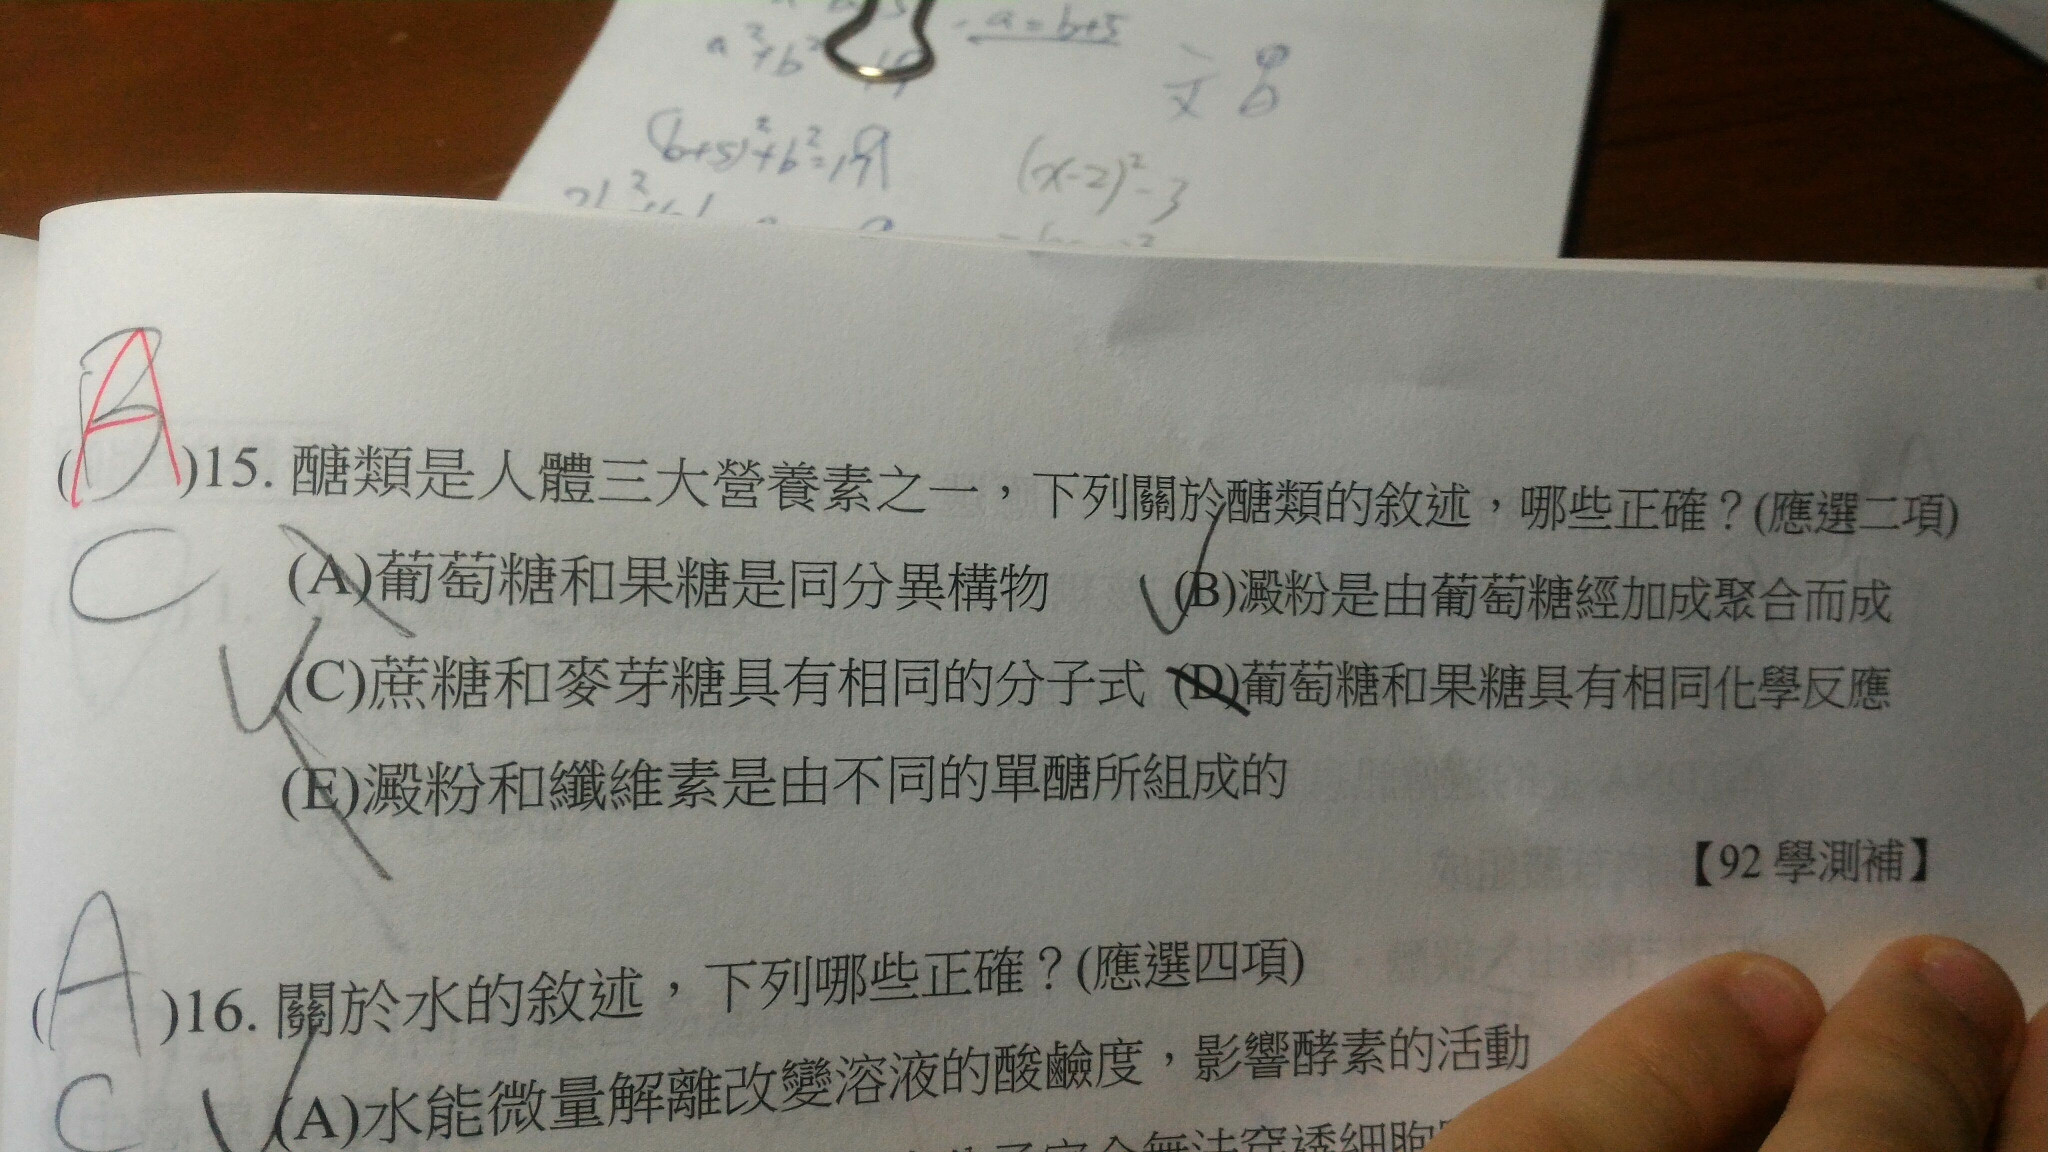 a=b+5
(b+5)²+b²=19
(x-2)²-3
A
(B)15. 醣類是人體三大營養素之一，下列關於醣類的敘述，哪些正確？(應選二項)
C
(A)葡萄糖和果糖是同分異構物 (B)澱粉是由葡萄糖經加成聚合而成
(C)蔗糖和麥芽糖具有相同的分子式 (D)葡萄糖和果糖具有相同化學反應
(E)澱粉和纖維素是由不同的單醣所組成的
【92學測補】
(A)16. 關於水的敘述，下列哪些正確？(應選四項)
C
(A)水能微量解離改變溶液的酸鹼度，影響酵素的活動